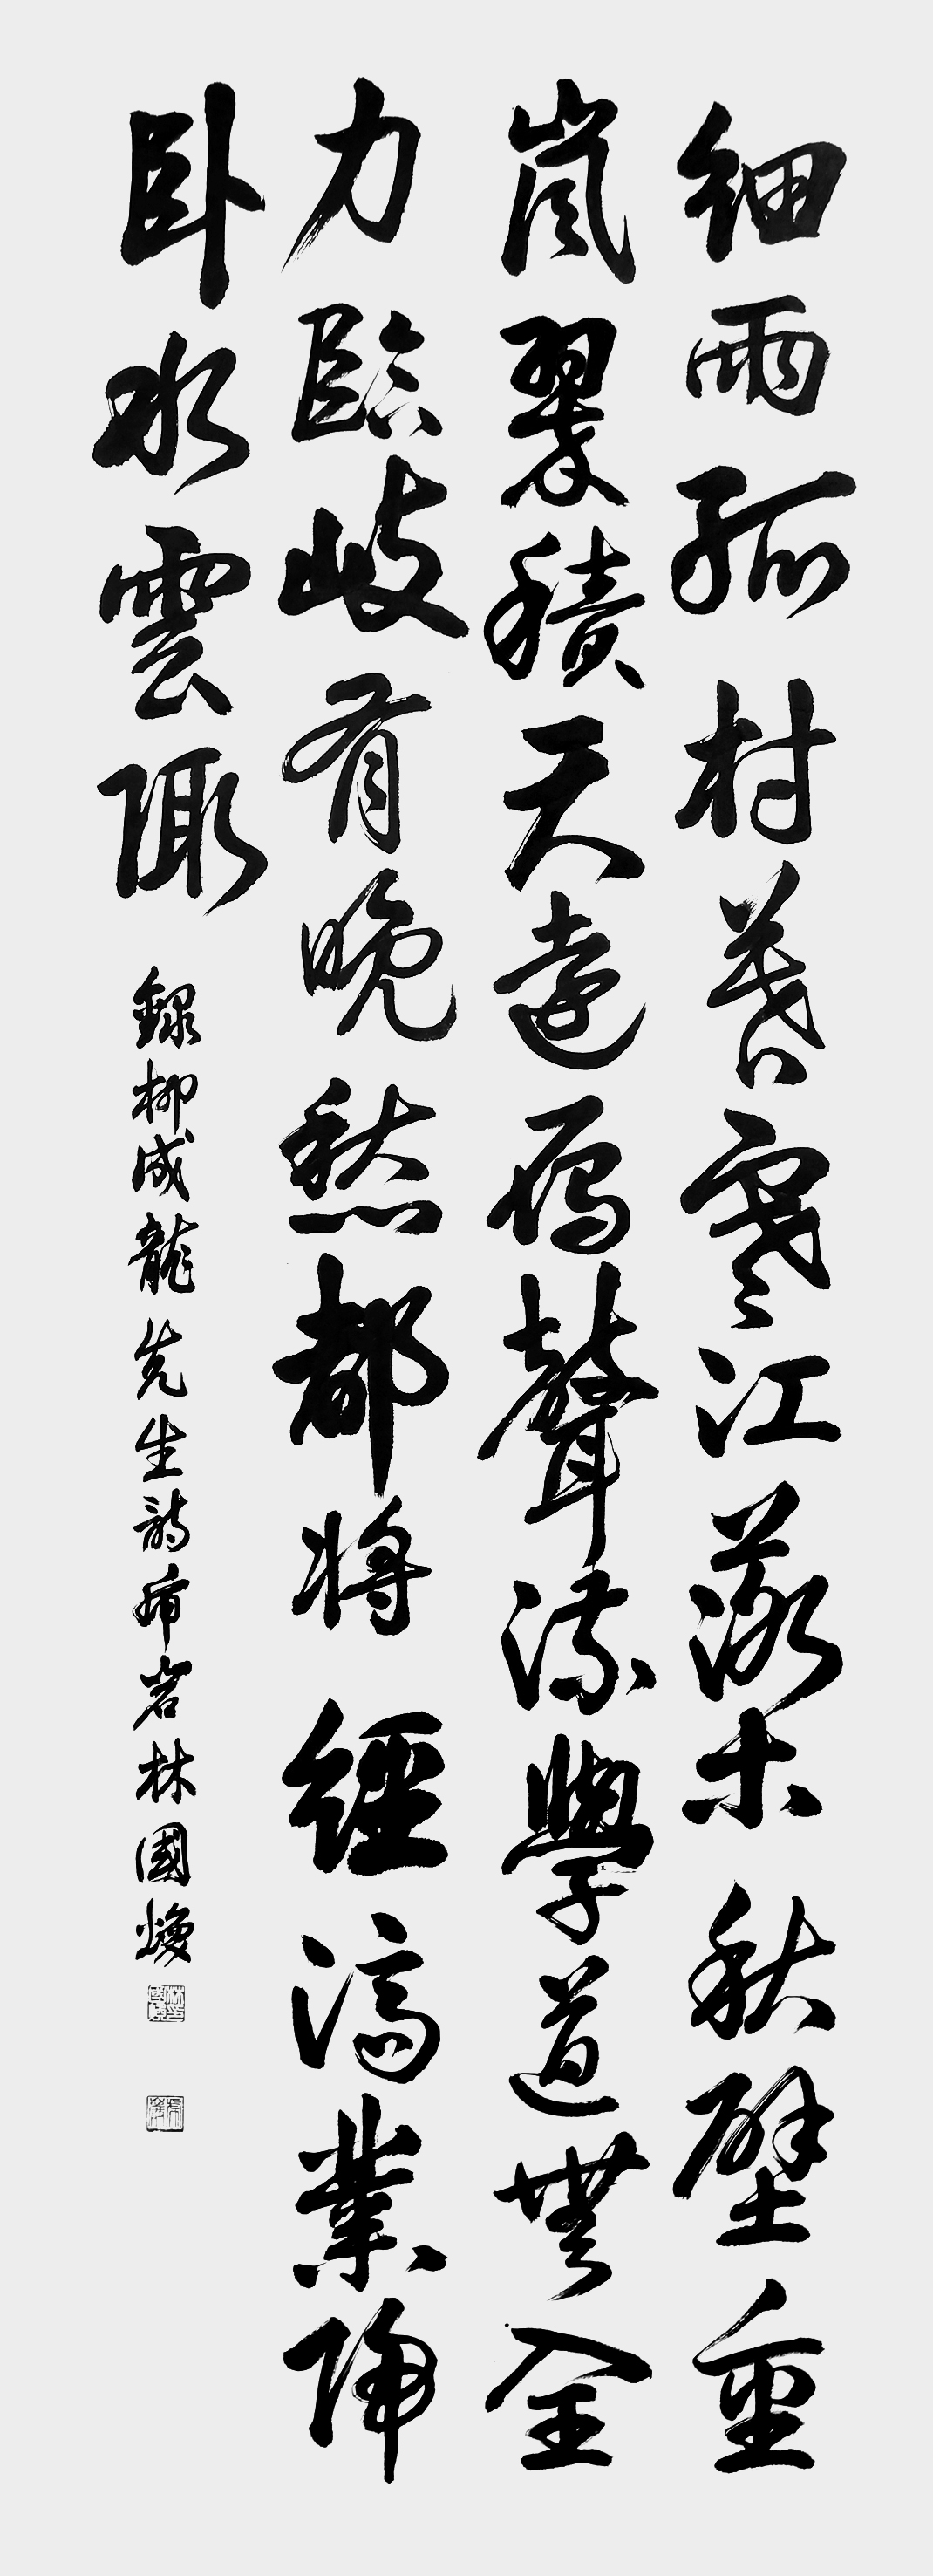 細雨孤村暮寒江落木秋壁重
嵐翠積天遠雁聲流學道無全
力臨岐有晚愁都將經濟業歸
臥水雲陬
錄柳成龍先生詩岩林國煥